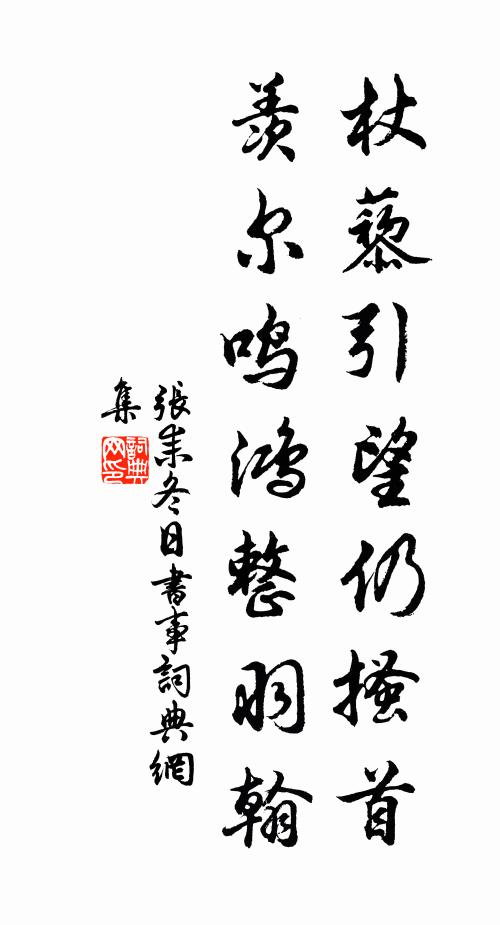 杖藜引望仍搔首
羡尔鳴鴻整羽翰
張耒冬日書事詞典網
集
詞典网印